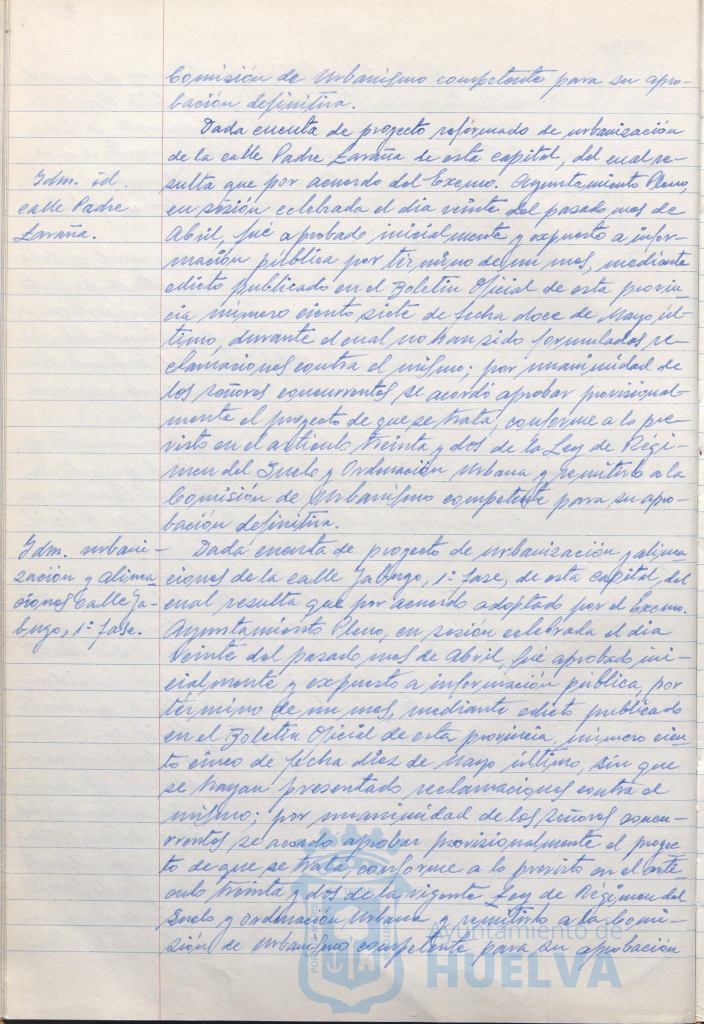 Comisión de Urbanismo competente para su apro-
bación definitiva.
Idm. id.
calle Padre
Laraña.
Dada cuenta de proyecto reformado de urbanización
de la calle Padre Laraña de esta capital, del cual re-
sulta que por acuerdo del Excmo. Ayuntamiento Pleno,
en sesión celebrada el dia veinte del pasado mes de
Abril, fué aprobado inicialmente y expuesto a infor-
mación pública por término de un mes, mediante
edicto publicado en el Boletin Oficial de esta provin-
cia número ciento siete de fecha doce de Mayo úl-
timo, durante el cual no han sido formulados re-
clamaciones contra el mismo; por unanimidad de
los señores concurrentes se acordó aprobar provisional-
mente el proyecto de que se trata, conforme a lo pre-
visto en el artículo treinta y dos de la Ley de Régi-
men del Suelo y Ordenación Urbana y remitirlo a la
Comisión de Urbanismo competente para su apro-
bación definitiva.
Idm. urbani-
zación y alinea-
ciones calle Ja-
bugo, 1ª fase.
Dada cuenta de proyecto de urbanización y alinea-
ciones de la calle Jabugo, 1ª fase, de esta capital, del
cual resulta que por acuerdo adoptado por el Excmo.
Ayuntamiento Pleno, en sesión celebrada el dia
veinte del pasado mes de Abril, fué aprobado ini-
cialmente y expuesto a información pública, por
término de un mes, mediante edicto publicado
en el Boletin Oficial de esta provincia, número cien-
to cinco de fecha diez de Mayo último, sin que
se hayan presentado reclamaciones contra el
mismo; por unanimidad de los señores concu-
rrentes se acordó aprobar provisionalmente el proyec-
to de que se trata, conforme a lo previsto en el artí-
culo treinta y dos de la vigente Ley de Régimen del
Suelo y Ordenación Urbana y remitirlo a la Comi-
sión de Urbanismo competente para su aprobación
Ayuntamiento de
HUELVA